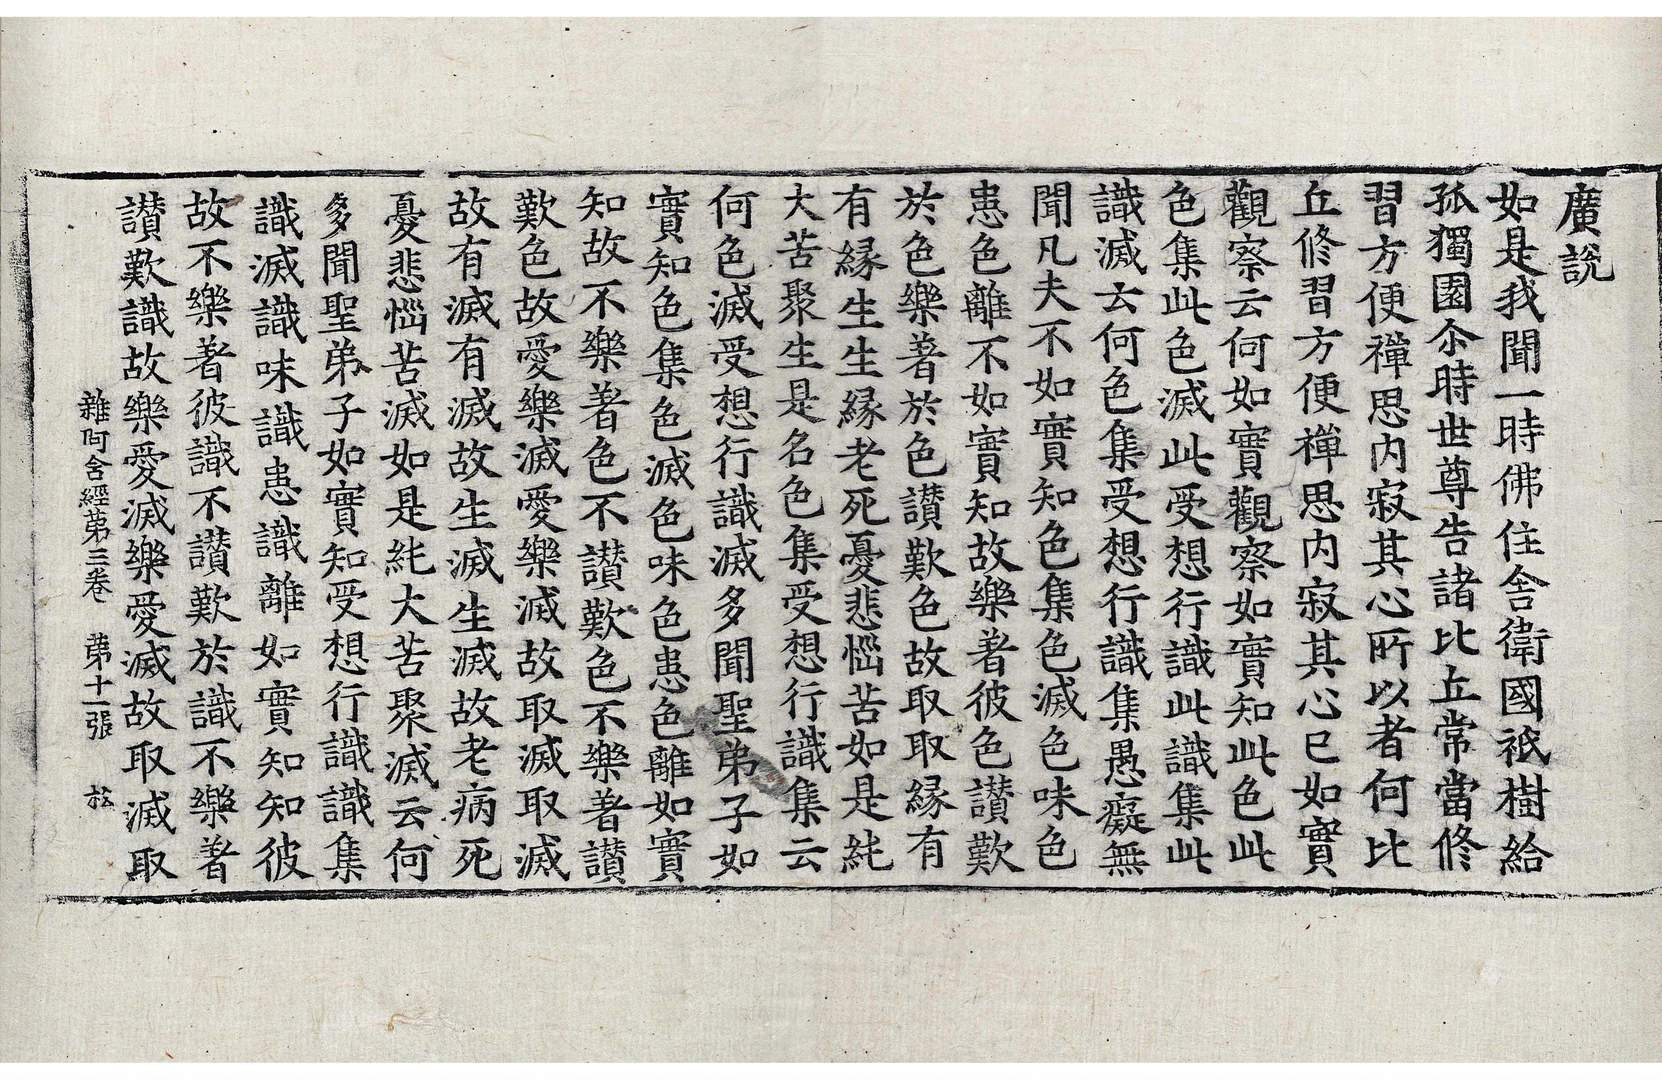 廣說
如是我聞一時佛住舍衛國祇樹給
孤獨園尒時世尊告諸比丘常當修
習方便禪思内寂其心所以者何比
丘修習方便禪思内寂其心已如實
觀察云何如實觀察如實知此色此
色集此色滅此受想行識此識集此
識滅云何色集受想行識集愚癡無
聞凡夫不如實知色集色滅色味色
患色離不如實知故樂著彼色讃歎
於色樂著於色讃歎色故取取縁有
有縁生生縁老死憂悲惱苦如是純
大苦聚生是名色集受想行識集云
何色滅受想行識滅多聞聖弟子如
實知色集色滅色味色患色離如實
知故不樂著色不讃歎色不樂著讃
歎色故愛樂滅愛樂滅故取滅取滅
故有滅有滅故生滅生滅故老病死
憂悲惱苦滅如是純大苦聚滅云何
多聞聖弟子如實知受想行識識集
識滅識味識患識離如實知知彼
故不樂著彼識不讃歎於識不樂著
讃歎識故樂愛滅樂愛滅故取滅取
雜阿含經第三卷 第十一張